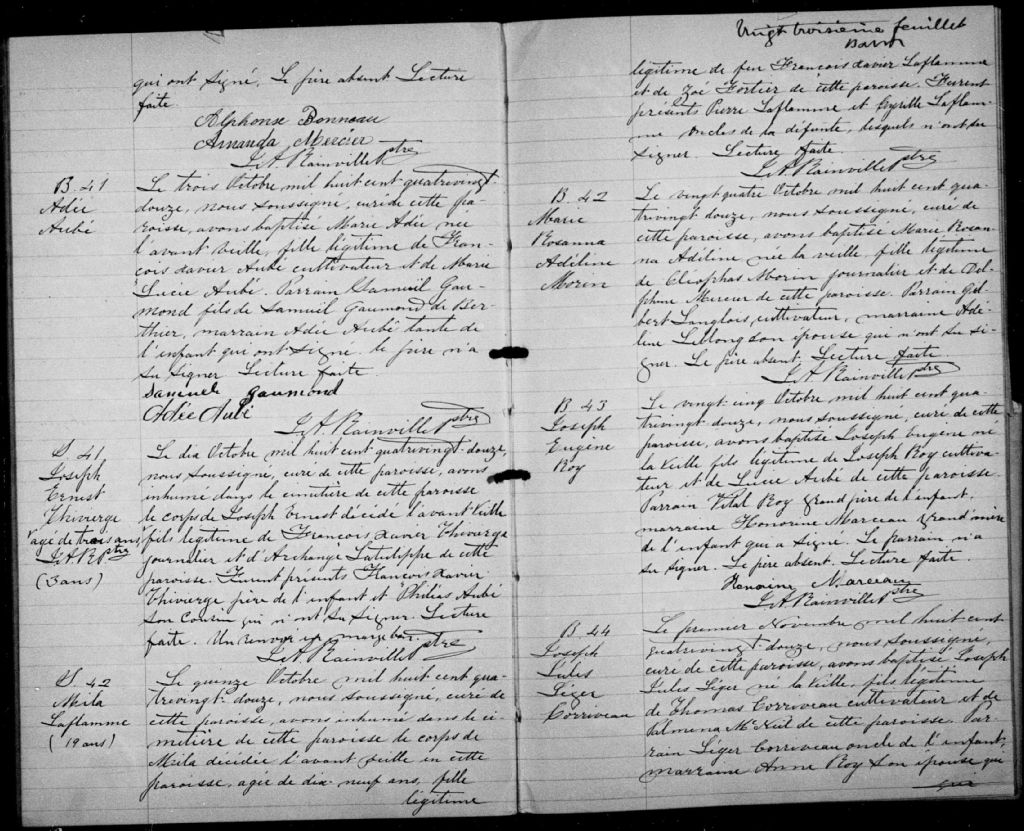 qui ont signé. Le père absent Lecture
faite.
Alphonse Bonneau
Amanda Mercier
J.A. Rainville Ptre
B. 41
Adée
Aubé
Le trois Octobre mil huit cent quatrevingt-
douze, nous soussigné, curé de cette pa-
roisse, avons baptisé Marie Adée née
l'avant veille, fille légitime de Fran-
çois Xavier Aubé cultivateur et de Marie
Lucie Aubé. Parrain Samuël Gau-
mond fils de Samuël Gaumond de Ber-
thier, marrain Adée Aubé tante de
l'enfant qui ont signé. le père n'a
su signer Lecture faite
Samuel Gaumond
Adée Aubé
J.A. Rainville Ptre
S. 41
Joseph
Ernest
Thivierge
agé de trois ans
J.A.R. Ptre
(3 ans)
Le dix Octobre mil huit cent quatrevingt-douze,
nous soussigné, curé de cette paroisse, avons
inhumé dans le cimetière de cette paroisse
le corps de Joseph Ernest décédé l'avant veille
fils légitime de François Xavier Thivierge
journalier et d'Archange Latulippe de cette
paroisse. Furent présents François Xavier
Thivierge père de l'enfant et Philéas Aubé
son cousin qui n'ont su signer. Lecture
faite. Un renvoi en marge bon.
J.A. Rainville Ptre
S. 42
Mila
Laflamme
(19 ans)
Le quinze Octobre mil huit cent qua-
trevingt-douze, nous soussigné, curé de
cette paroisse, avons inhumé dans le ci-
metière de cette paroisse le corps de
Mila décédée l'avant veille en cette
paroisse, agée de dix neuf ans, fille
légitime
Vingt troisième feuillet
légitime de feu François Xavier Laflamme
et de Zoé Fortier de cette paroisse. Furent
présents Pierre Laflamme et Cyrille Laflam-
me oncles de la défunte, lesquels n'ont su
signer. Lecture faite.
J.A. Rainville Ptre
B. 42
Marie
Rosanna
Adéline
Morin
Le vingt quatre Octobre mil huit cent qua-
trevingt douze, nous soussigné, curé de
cette paroisse, avons baptisé Marie Rosan-
na Adéline née la veille, fille légitime
de Cléophas Morin journalier et de Del-
phine Mercier de cette paroisse. Parrain Gil-
bert Langlois, cultivateur, marraine Adé-
line son épouse qui n'ont su si-
gner. Le père absent. Lecture faite.
J.A. Rainville Ptre
B. 43
Joseph
Eugène
Roy
Le vingt-cinq Octobre mil huit cent qua-
trevingt-douze, nous soussigné, curé de cette
paroisse, avons baptisé Joseph Eugène né
la veille fils légitime de Joseph Roy cultiva-
teur et de Lucie Aubé de cette paroisse.
Parrain Vital Roy grand père de l'enfant,
marraine Honorine Marceau grand'mère
de l'enfant qui a signé. Le parrain n'a
su signer. Le père absent. Lecture faite.
Marceau
J.A. Rainville Ptre
B. 44
Joseph
Jules
Léger
Corriveau
Le premier Novembre mil huit cent
quatrevingt-douze, nous soussigné,
curé de cette paroisse, avons baptisé Joseph
Jules Léger né la veille, fils légitime
de Thomas Corriveau cultivateur et de
Palmena McNeil de cette paroisse. Par-
rain Léger Corriveau oncle de l'enfant,
marraine Anne Roy son épouse qui
qui